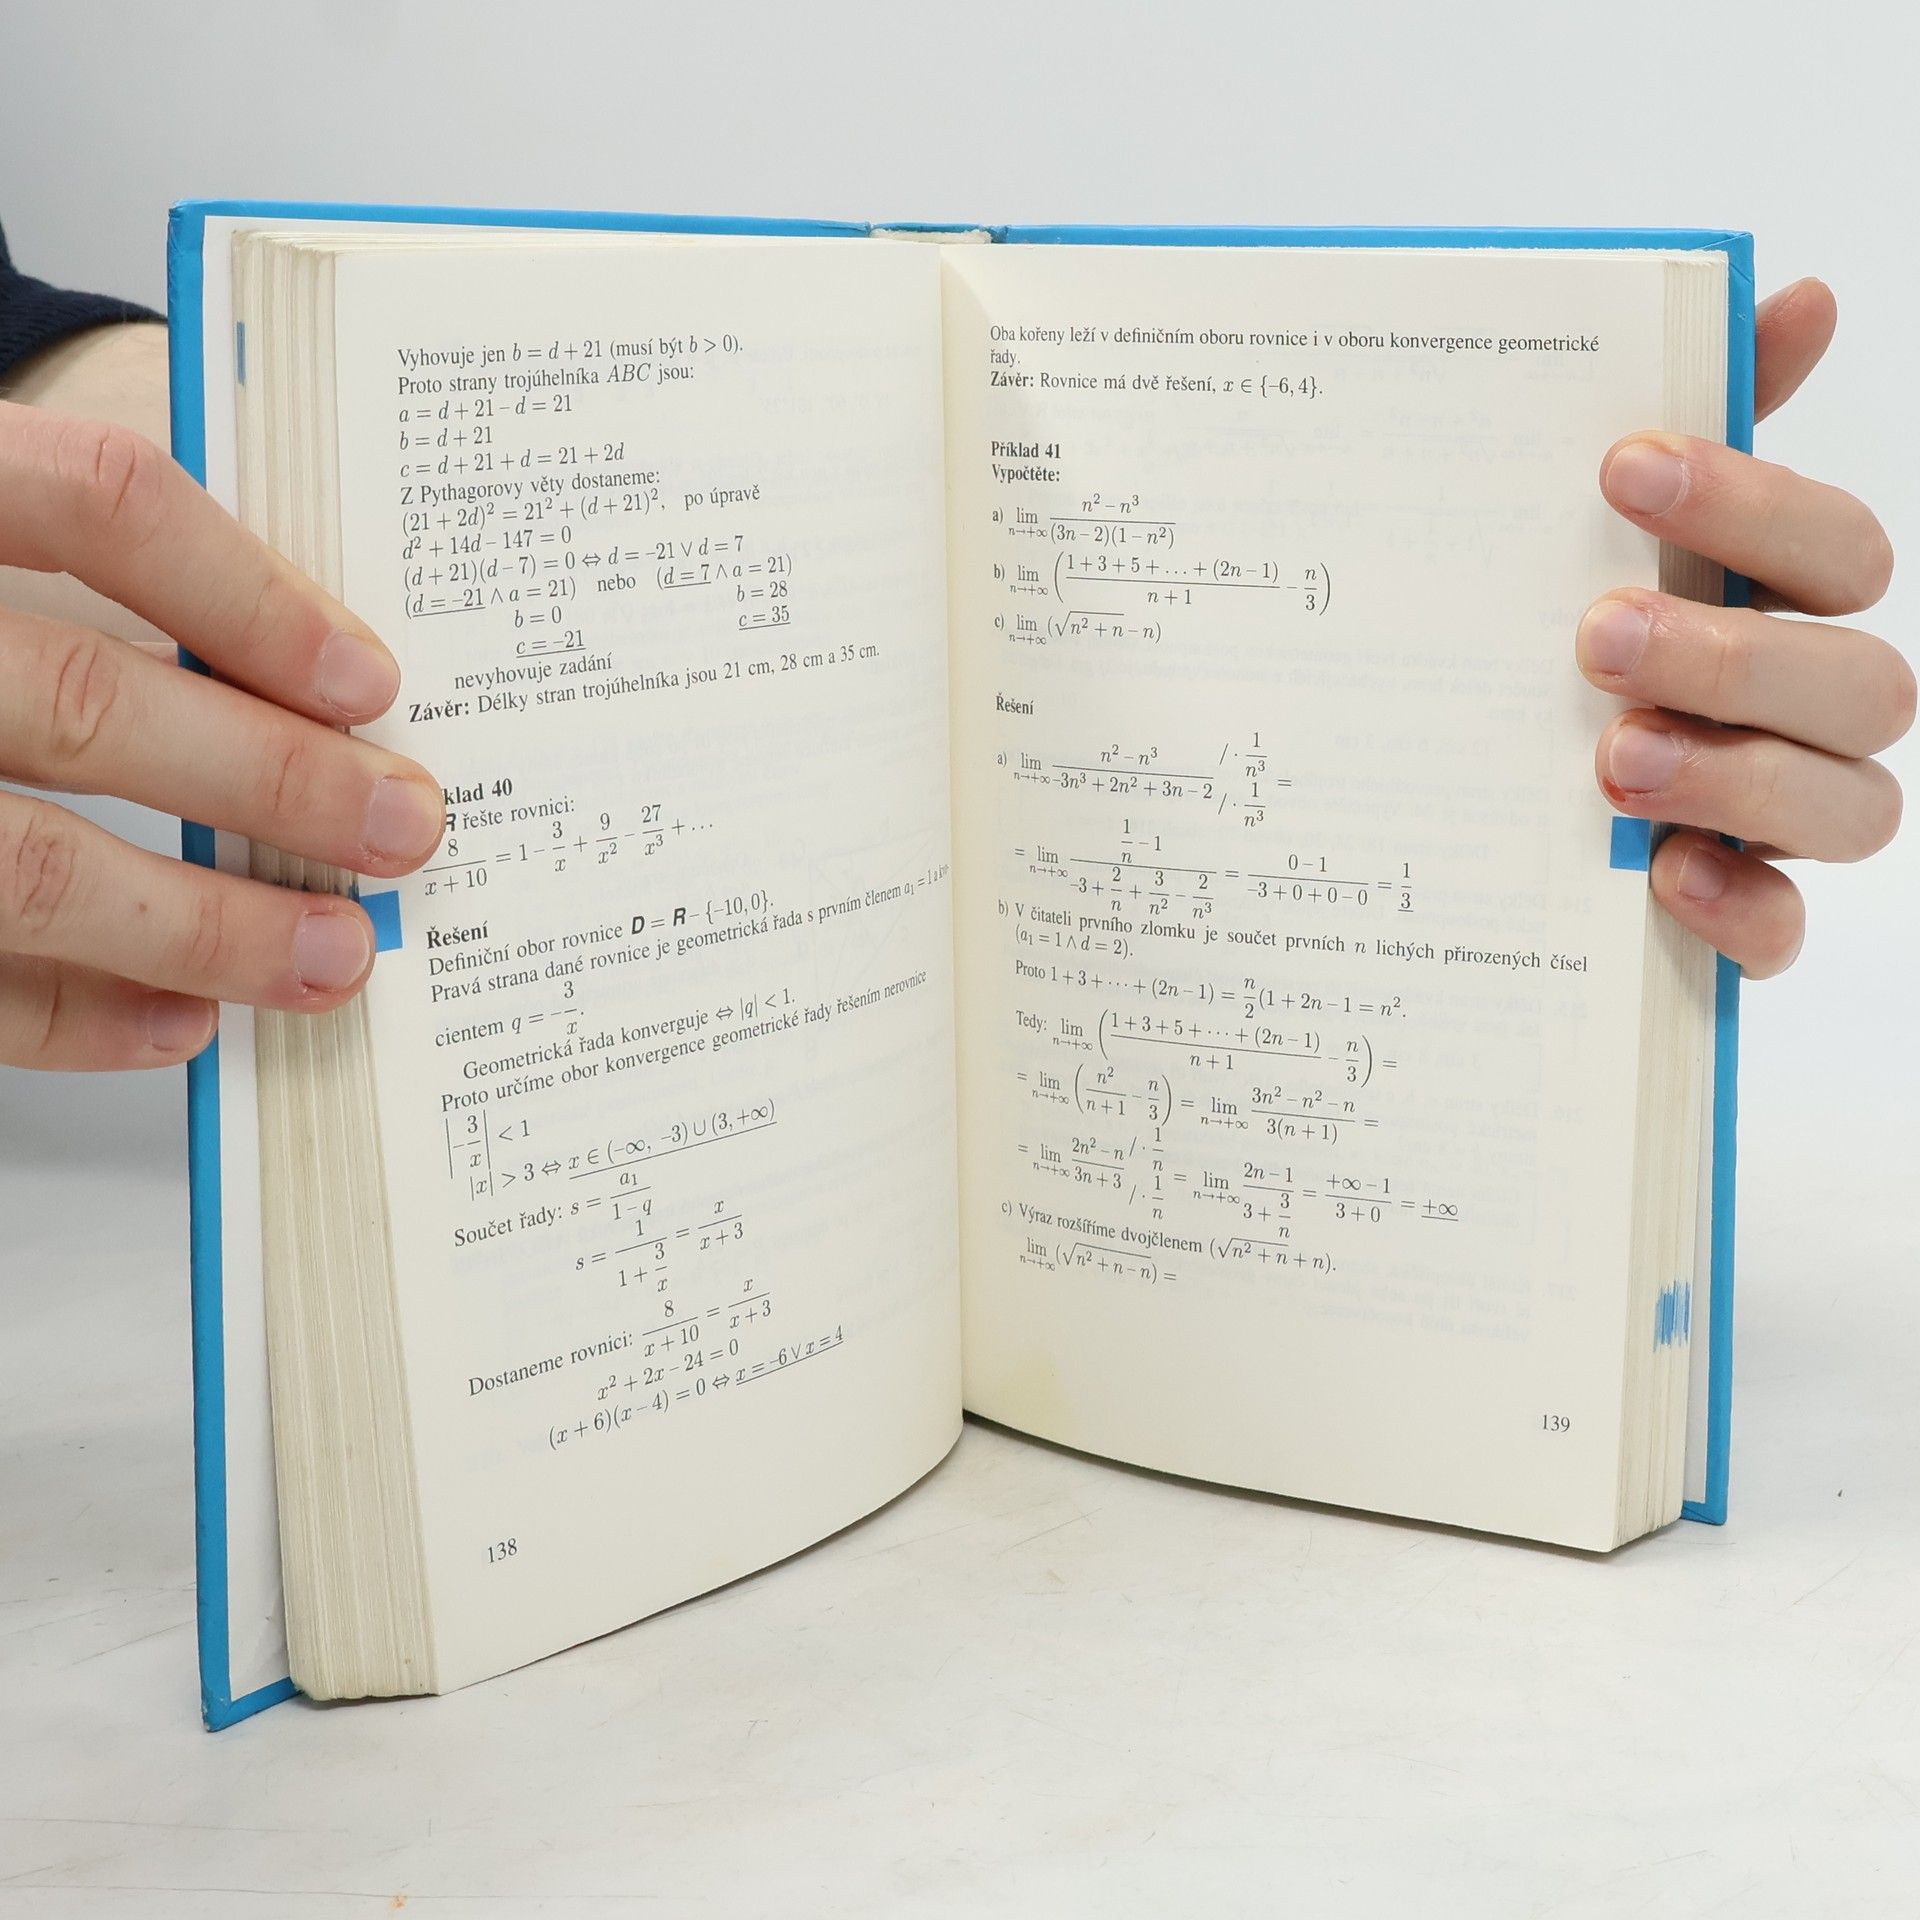 Vyhovuje jen b = d + 21 (musí být b > 0).
Proto strany trojúhelníka ABC jsou:
a = d + 21 – d = 21
b = d + 21
c = d + 21 + d = 21 + 2d
Z Pythagorovy věty dostaneme:
(21 + 2d)² = 21² + (d + 21)², po úpravě
d² + 14d – 147 = 0
(d + 21)(d – 7) = 0 ⇔ d = –21 ∨ d = 7
(d = –21 ∧ a = 21) nebo (d = 7 ∧ a = 21)
b = 0 b = 28
c = –21 c = 35
nevyhovuje zadání
Závěr: Délky stran trojúhelníka jsou 21 cm, 28 cm a 35 cm.
klad 40
R řešte rovnici:
8/(x + 10) = 1 – 3/x + 9/x² – 27/x³ + …
Řešení
Definiční obor rovnice D = R – {–10, 0}.
Pravá strana dané rovnice je geometrická řada s prvním členem a₁ = 1 a
cientem q = –3/x.
Geometrická řada konverguje ⇔ |q| < 1.
Proto určíme obor konvergence geometrické řady řešením nerovnice
|–3/x| < 1
|x| > 3 ⇔ x ∈ (–∞, –3) ∪ (3, +∞)
Součet řady: s = a₁/(1 – q)
s = 1/(1 + 3/x) = x/(x + 3)
Dostaneme rovnici: 8/(x + 10) = x/(x + 3)
x² + 2x – 24 = 0
(x + 6)(x – 4) = 0 ⇔ x = –6 ∨ x = 4
138
Oba kořeny leží v definičním oboru rovnice i v oboru konvergence geometrické
řady.
Závěr: Rovnice má dvě řešení, x ∈ {–6, 4}.
Příklad 41
Vypočtěte:
a) lim n→+∞ (n² – n³)/((3n – 2)(1 – n²))
b) lim n→+∞ ((1 + 3 + 5 + … + (2n – 1))/(n + 1) – n/3)
c) lim n→+∞ (√(n² + n) – n)
Řešení
a) lim n→+∞ (n² – n³)/(–3n³ + 2n² + 3n – 2) /· 1/n³ /· 1/n³ =
= lim n→+∞ (1/n – 1)/(–3 + 2/n + 3/n² – 2/n³) = (0 – 1)/(–3 + 0 + 0 – 0) = 1/3
b) V čitateli prvního zlomku je součet prvních n lichých přirozených čísel
(a₁ = 1 ∧ d = 2).
Proto 1 + 3 + ⋯ + (2n – 1) = n/2(1 + 2n – 1 = n².
Tedy: lim n→+∞ ((1 + 3 + 5 + ⋯ + (2n – 1))/(n + 1) – n/3) =
= lim n→+∞ (n²/(n + 1) – n/3) = lim n→+∞ (3n² – n² – n)/(3(n + 1)) =
= lim n→+∞ (2n² – n)/(3n + 3) /· 1/n /· 1/n = lim n→+∞ (2n – 1)/(3 + 3/n) = (+∞ – 1)/(3 + 0) = +∞
c) Výraz rozšíříme dvojčlenem (√(n² + n) + n).
lim n→+∞ (√(n² + n – n)) =
139